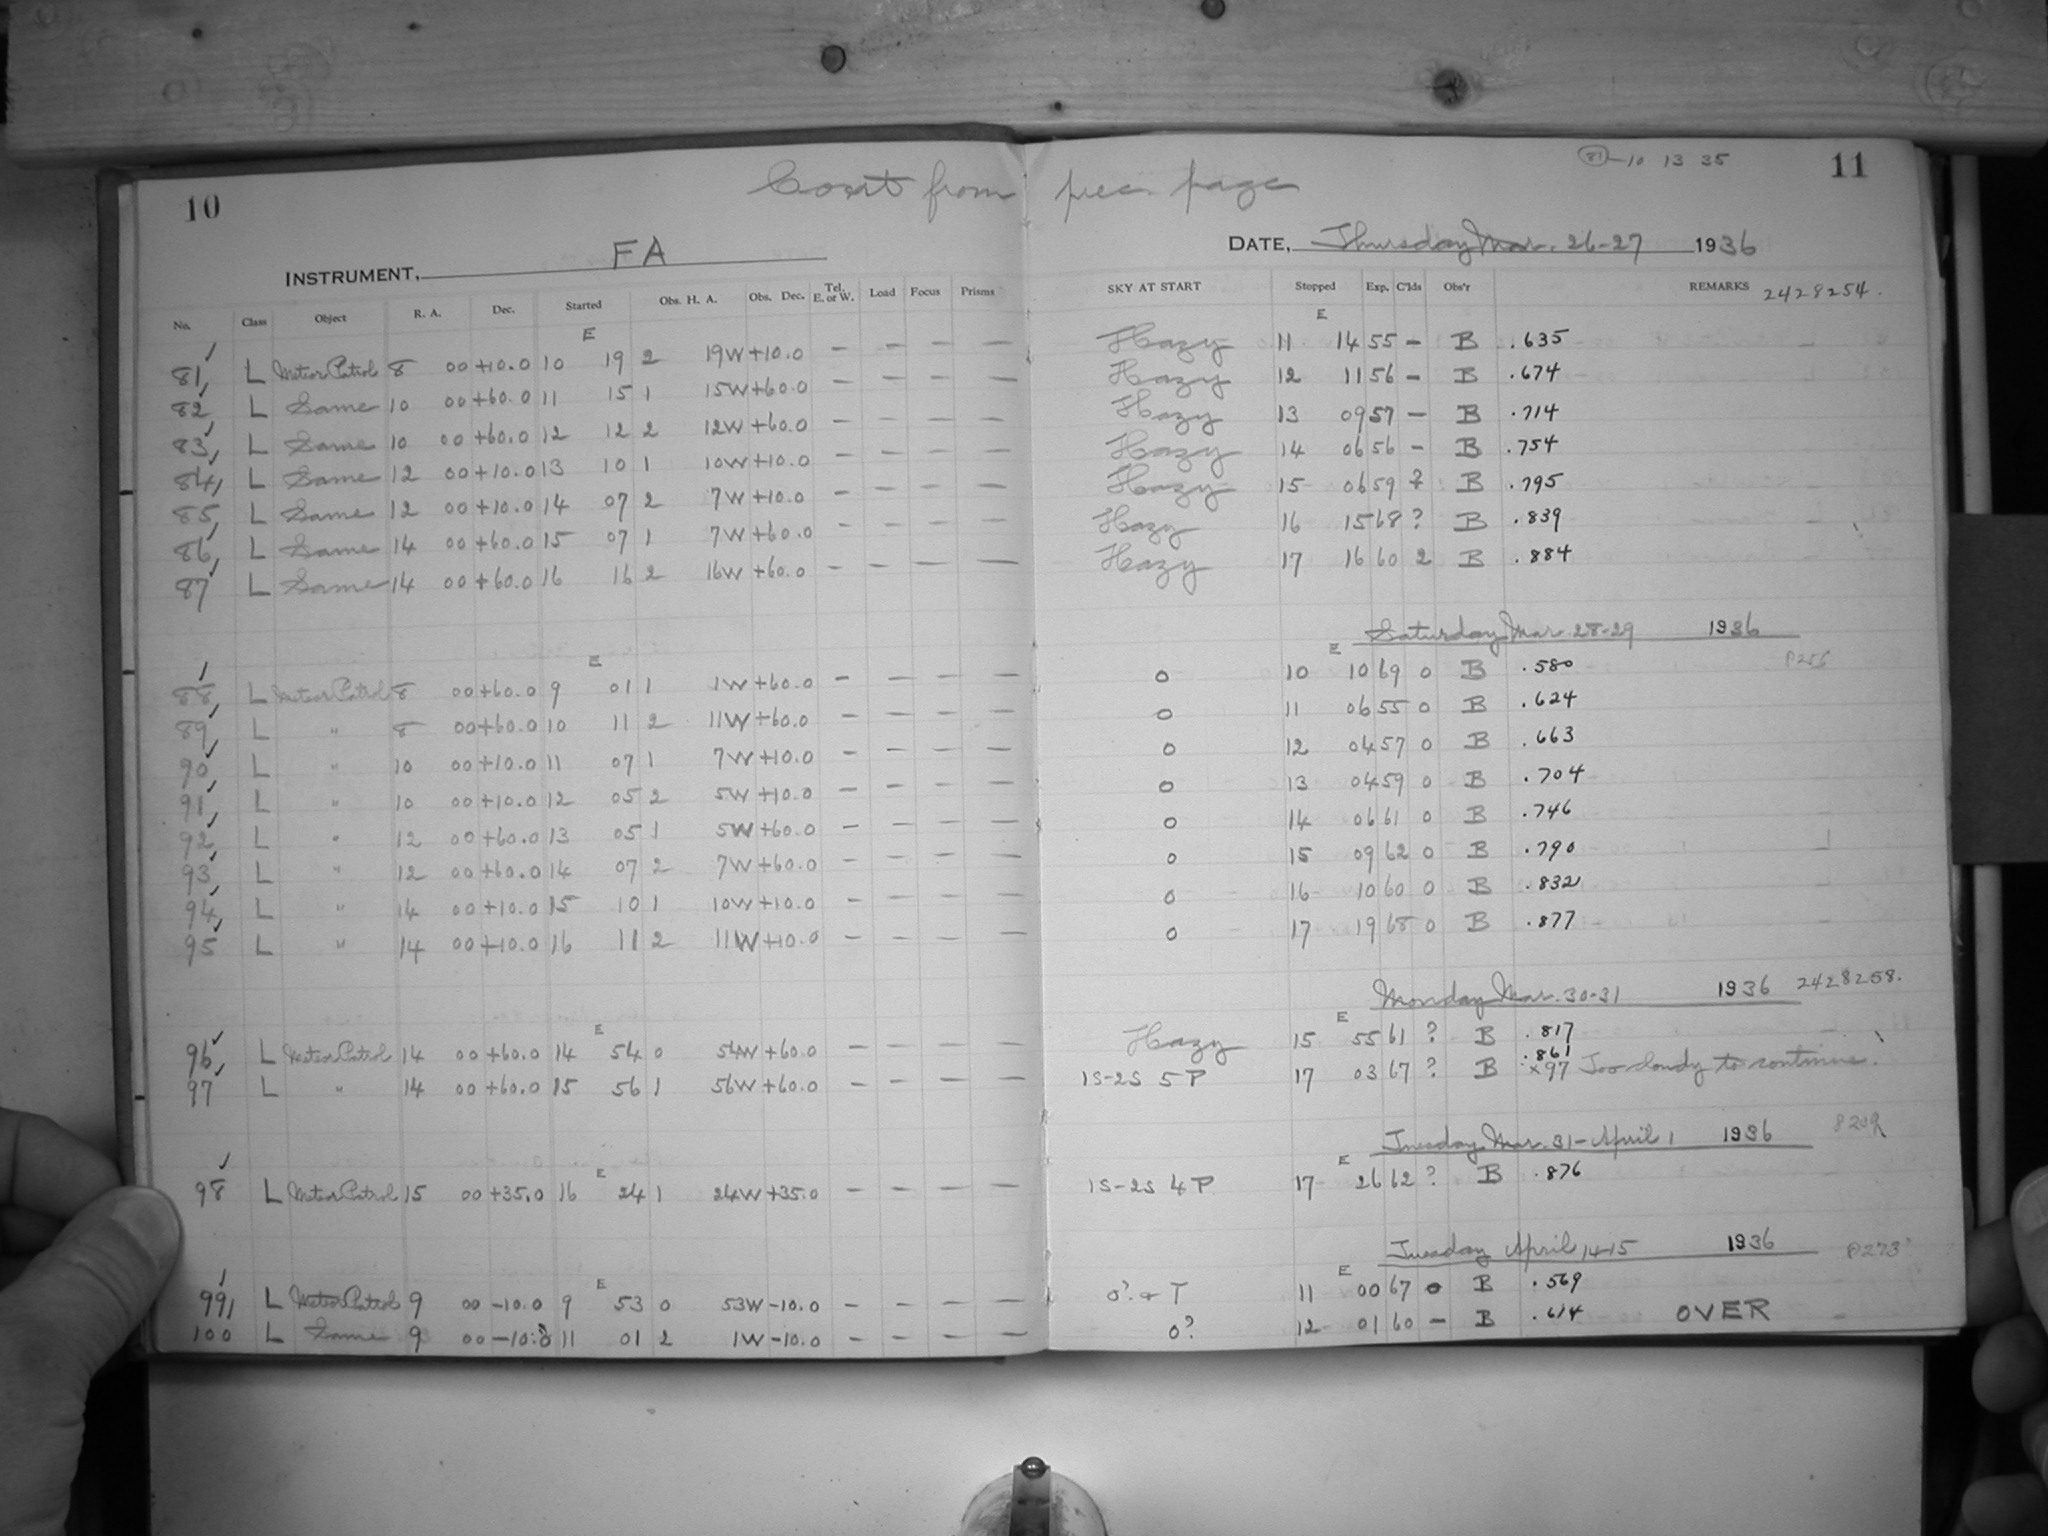 10
Cont from prec. page
81-10 13 35
11
INSTRUMENT, FA
DATE, Thursday Mar. 26-27 1936
No. Class Object R. A. Dec. Started Obs. H. A. Obs. Dec. Tel. E. or W. Load Focus Prisms SKY AT START Stopped Exp. C'lds Obs'r REMARKS 2428254.
E E
81 L Meteor Patrol 8 00 +10.0 10 19 2 19W +10.0 — — — — Hazy 11 14 55 — B .635
82 L Same 10 00 +60.0 11 15 1 15W +60.0 — — — — Hazy 12 11 56 — B .674
83 L Same 10 00 +60.0 12 12 2 12W +60.0 — — — — Hazy 13 09 57 — B .714
84 L Same 12 00 +10.0 13 10 1 10W +10.0 — — — — Hazy 14 06 56 — B .754
85 L Same 12 00 +10.0 14 07 2 7W +10.0 — — — — Hazy 15 06 59 ? B .795
86 L Same 14 00 +60.0 15 07 1 7W +60.0 — — — — Hazy 16 15 68 ? B .839
87 L Same 14 00 +60.0 16 16 2 16W +60.0 — — — — Hazy 17 16 60 2 B .884
Saturday Mar. 28-29 1936
E E
88 L Meteor Patrol 8 00 +60.0 9 01 1 1W +60.0 — — — — 0 10 10 69 0 B .580
89 L " 8 00 +60.0 10 11 2 11W +60.0 — — — — 0 11 06 55 0 B .624
90 L " 10 00 +10.0 11 07 1 7W +10.0 — — — — 0 12 04 57 0 B .663
91 L " 10 00 +10.0 12 05 2 5W +10.0 — — — — 0 13 04 59 0 B .704
92 L " 12 00 +60.0 13 05 1 5W +60.0 — — — — 0 14 06 61 0 B .746
93 L " 12 00 +60.0 14 07 2 7W +60.0 — — — — 0 15 09 62 0 B .790
94 L " 14 00 +10.0 15 10 1 10W +10.0 — — — — 0 16 10 60 0 B .832
95 L " 14 00 +10.0 16 11 2 11W +10.0 — — — — 0 17 19 68 0 B .877
Monday Mar. 30-31 1936 2428258.
E E
96 L Meteor Patrol 14 00 +60.0 14 54 0 54W +60.0 — — — — Hazy 15 55 61 ? B .817
97 L " 14 00 +60.0 15 56 1 56W +60.0 — — — — 1S-2S 5P 17 03 67 ? B .861 x97 Too cloudy to continue.
Tuesday Mar. 31-April 1 1936
E E
98 L Meteor Patrol 15 00 +35.0 16 24 1 24W +35.0 — — — — 1S-2S 4P 17 26 62 ? B .876
Tuesday April 14-15 1936
E E
99 L Meteor Patrol 9 00 -10.0 9 53 0 53W -10.0 — — — — 0? + T 11 00 67 0 B .569
100 L Same 9 00 -10.0 11 01 2 1W -10.0 — — — — 0? 12 01 60 — B .614 OVER